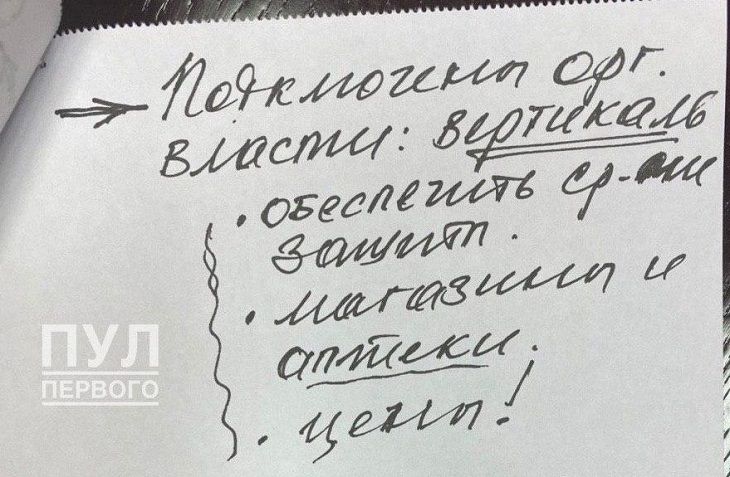 → Подключены орг.
власти: вертикаль
• обеспечить ср-ми
защиты.
• магазины и
аптеки.
• цены!
ПУЛ
ПЕРВОГО